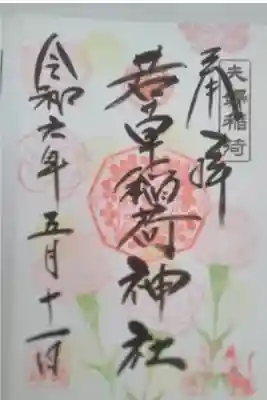 奉拝
夫婦稲荷
若草稲荷神社
令和六年五月十一日